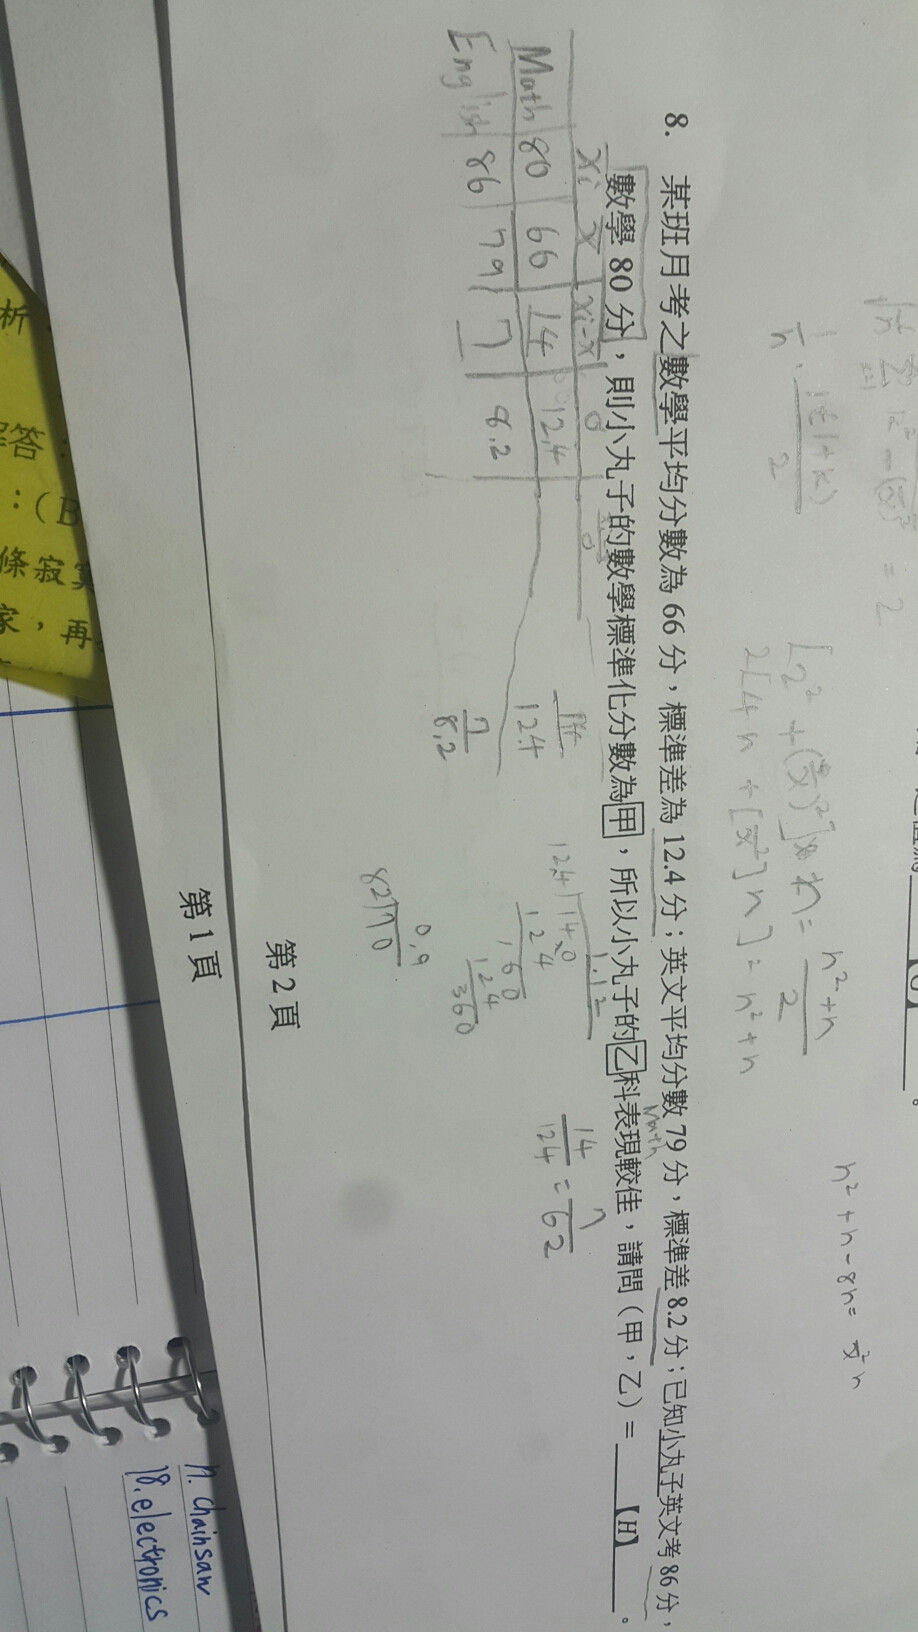 8. 某班月考之數學平均分數為 66 分，標準差為 12.4 分；英文平均分數 79 分，標準差 8.2 分；已知小丸子英文考 86 分，
數學 80 分，則小丸子的數學標準化分數為甲，所以小丸子的乙科表現較佳，請問（甲，乙）= 【H】 。
Math
xi x̄ xi-x̄
Math 80 66 14 12.4
English 86 79 7 8.2
12.4
7/8.2
1.12
12.4 14.0
12 4
1 60
124
360
0.9
82 70
14/124 = 7/62
第 2 頁
第 1 頁
n² + n - 8n = x̄² n
n² + n
2
= n² + n
= 2
解答：
：(B
條寂寞
家，再
n. chainsaw
18. electronics